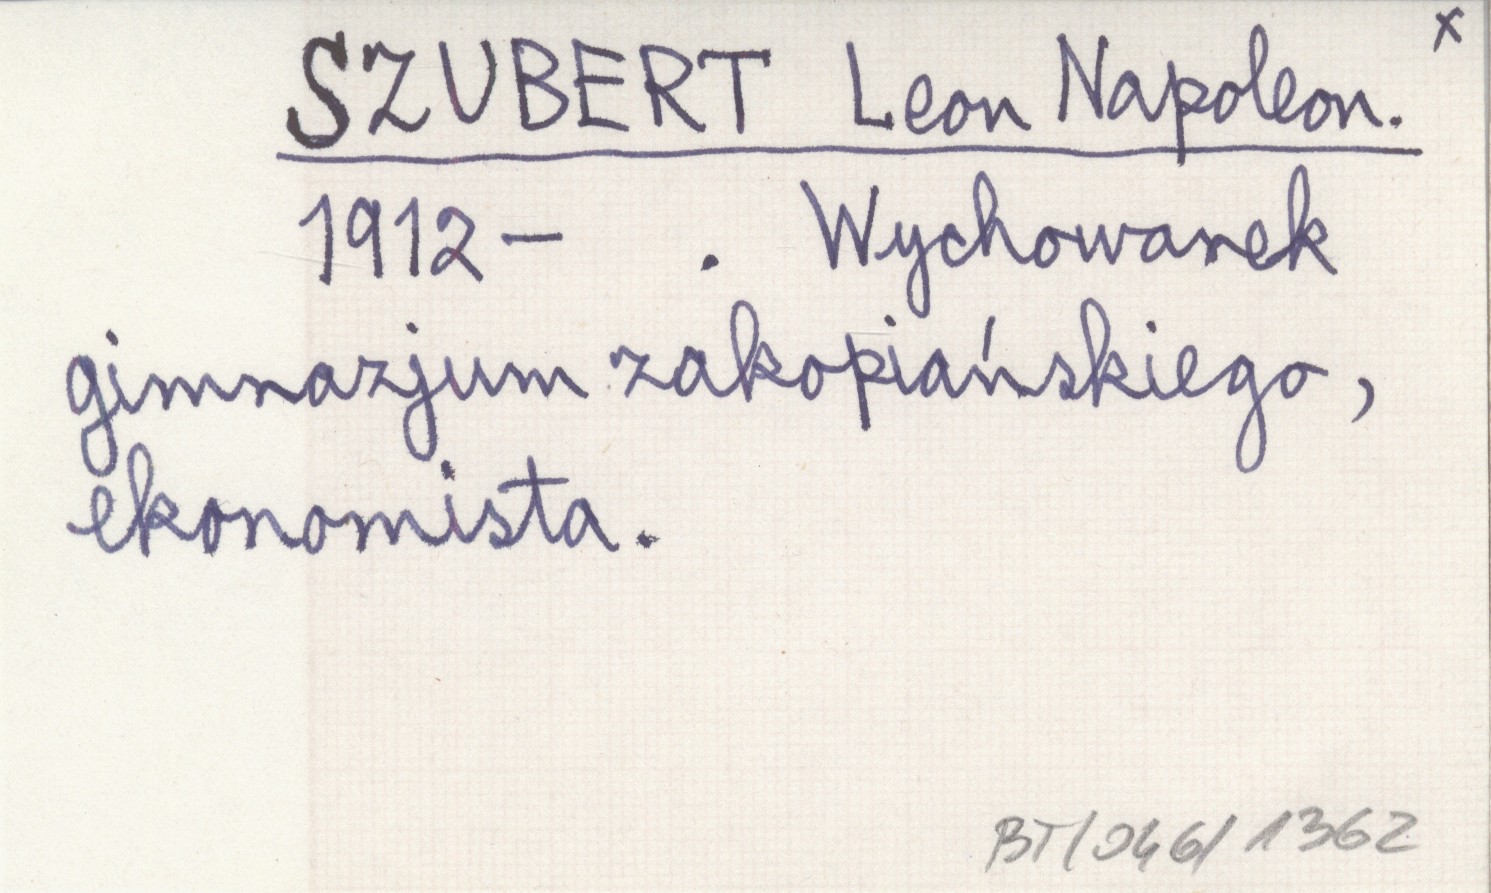 x
SZUBERT Leon Napoleon.
1912 - . Wychowanek
gimnazjum zakopiańskiego,
ekonomista.
BT/046/1362